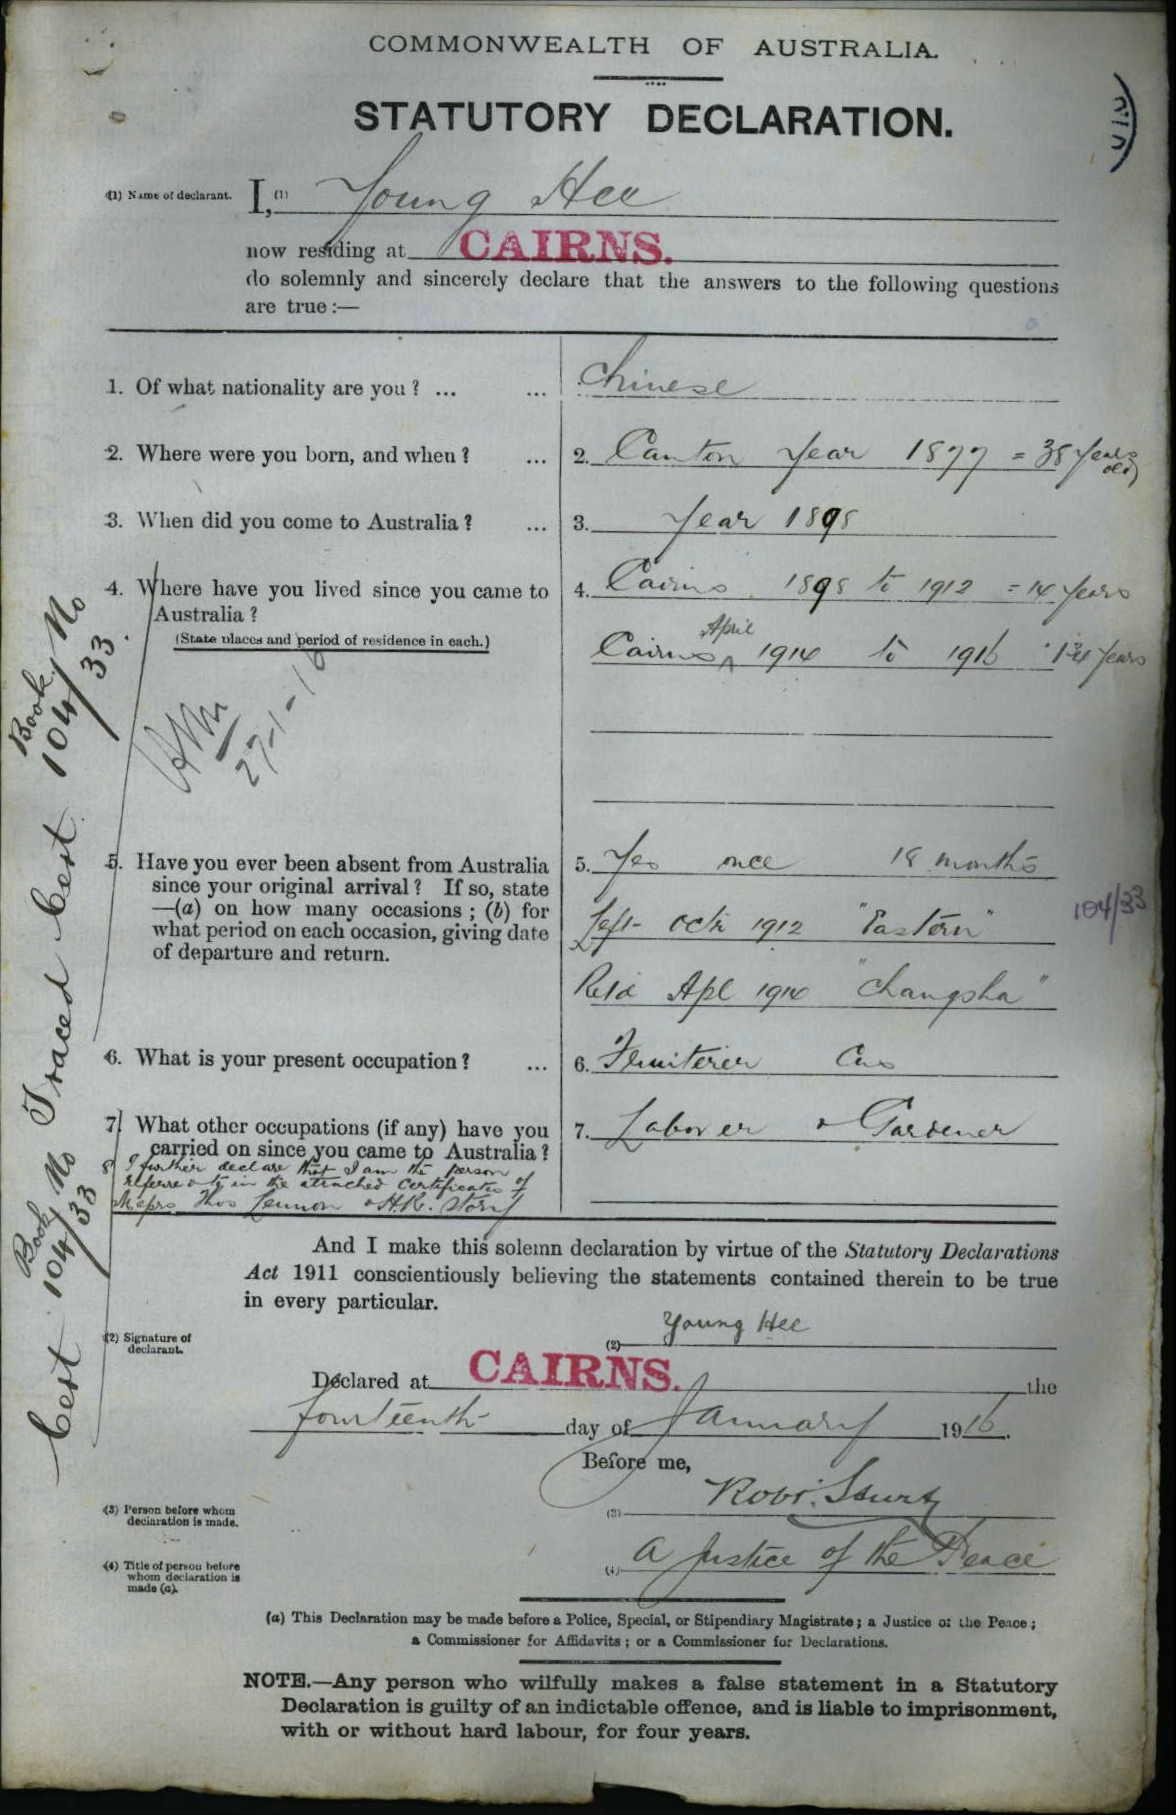 COMMONWEALTH OF AUSTRALIA.
STATUTORY DECLARATION.
(1) Name of declarant. I, (1) Young Hee
now residing at CAIRNS.
do solemnly and sincerely declare that the answers to the following questions
are true :—
1. Of what nationality are you ? ... ... Chinese
2. Where were you born, and when ? ... 2. Canton Year 1877 = 38 Years old
3. When did you come to Australia ? ... 3. Year 1898
4. Where have you lived since you came to 4. Cairns 1898 to 1912 = 14 Years
Australia ?
(State places and period of residence in each.)
April
Cairns 1914 to 1916 Years
27-1-16
5. Have you ever been absent from Australia 5. Yes once 18 months
since your original arrival ? If so, state
—(a) on how many occasions ; (b) for Left Octr 1912 "Eastern"
104/33
what period on each occasion, giving date
of departure and return.
Retd Apl 1914 "Changsha"
6. What is your present occupation ? ... 6. Fruiterer Cns
7. What other occupations (if any) have you 7. Laborer & Gardener
carried on since you came to Australia ?
8 I further declare that I am the person
referred to in the attached certificates of
Messrs Thos Lennon & H.R. Story
And I make this solemn declaration by virtue of the Statutory Declarations
Act 1911 conscientiously believing the statements contained therein to be true
in every particular.
(2) Signature of
declarant.
(2) Young Hee
Declared at CAIRNS. the
fourteenth day of January 1916.
Before me,
(3) Person before whom
declaration is made.
(3) Robt.
(4) Title of person before
whom declaration is
made (a).
(4) A Justice of the Peace
(a) This Declaration may be made before a Police, Special, or Stipendiary Magistrate ; a Justice of the Peace ;
a Commissioner for Affidavits ; or a Commissioner for Declarations.
NOTE.—Any person who wilfully makes a false statement in a Statutory
Declaration is guilty of an indictable offence, and is liable to imprisonment,
with or without hard labour, for four years.
Cert Book 104/33 No Traced Cert Book 104/33 No